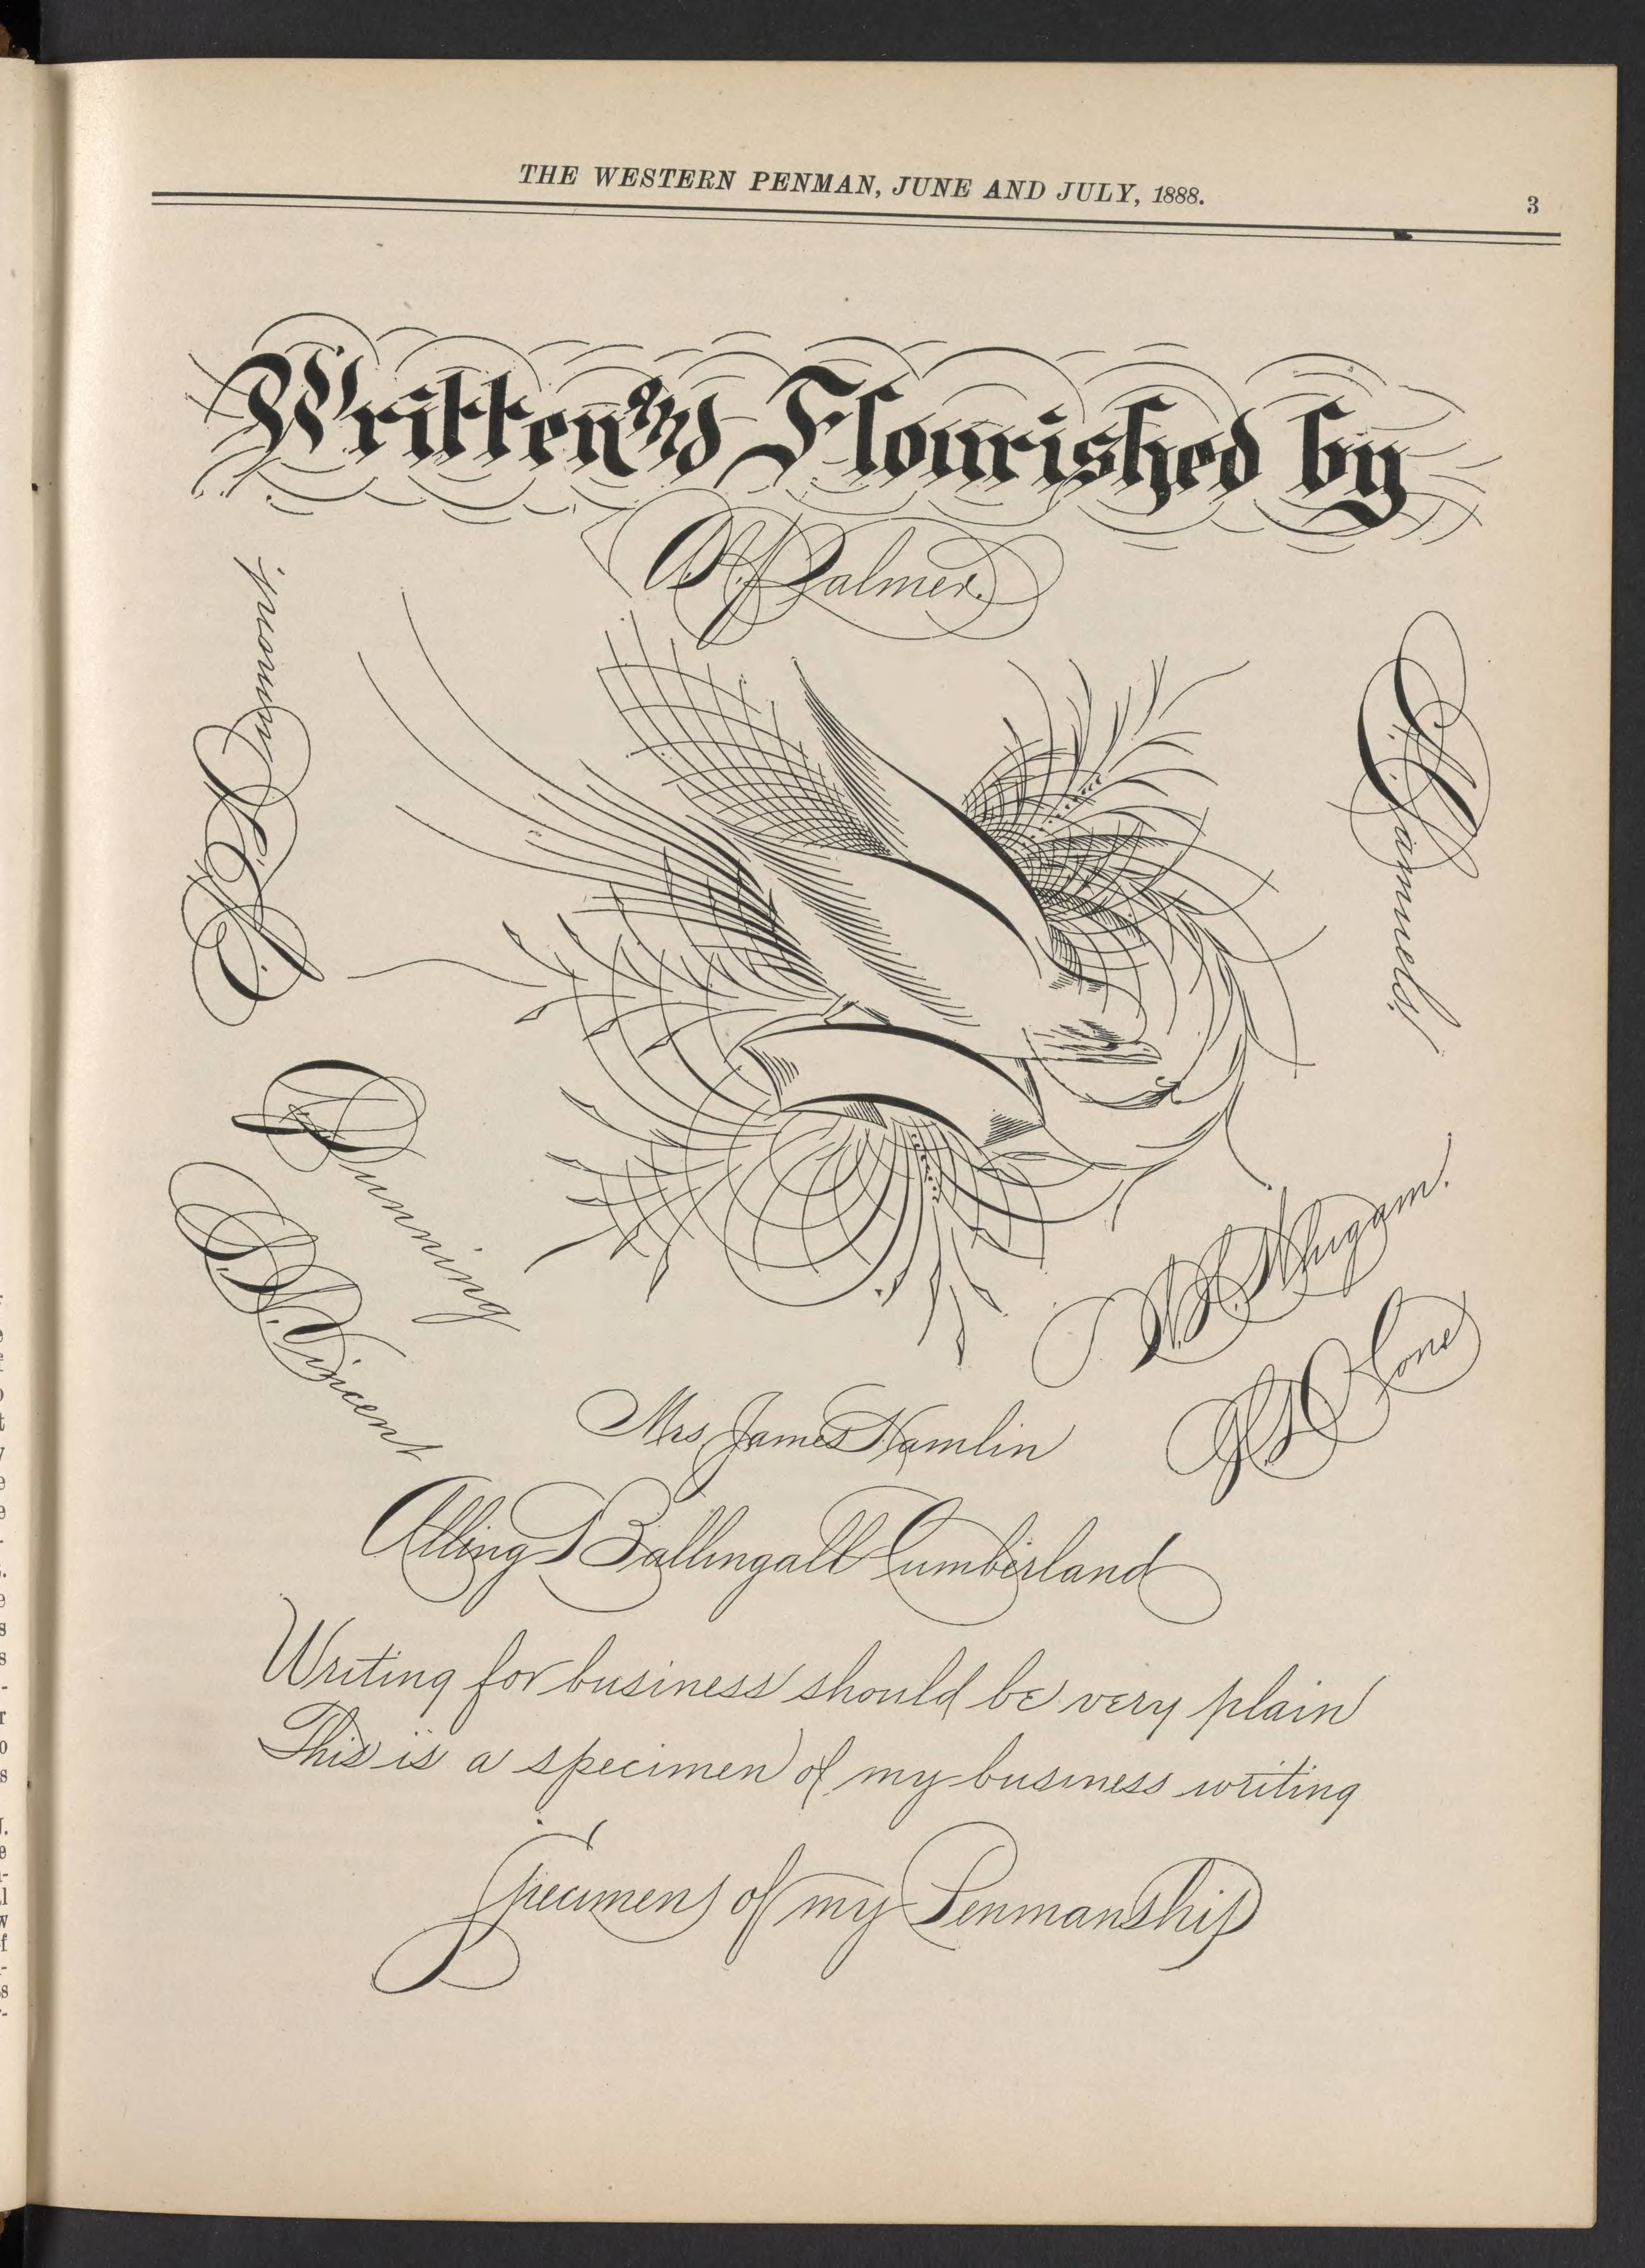 THE WESTERN PENMAN, JUNE AND JULY, 1888.
3
Written and Flourished by
A. N. Palmer.
Samuels.
Dunning
Vincent
Cone
Mrs James Hamlin
Alling Ballingall Cumberland
Writing for business should be very plain
This is a specimen of my business writing
Specimens of my Penmanship